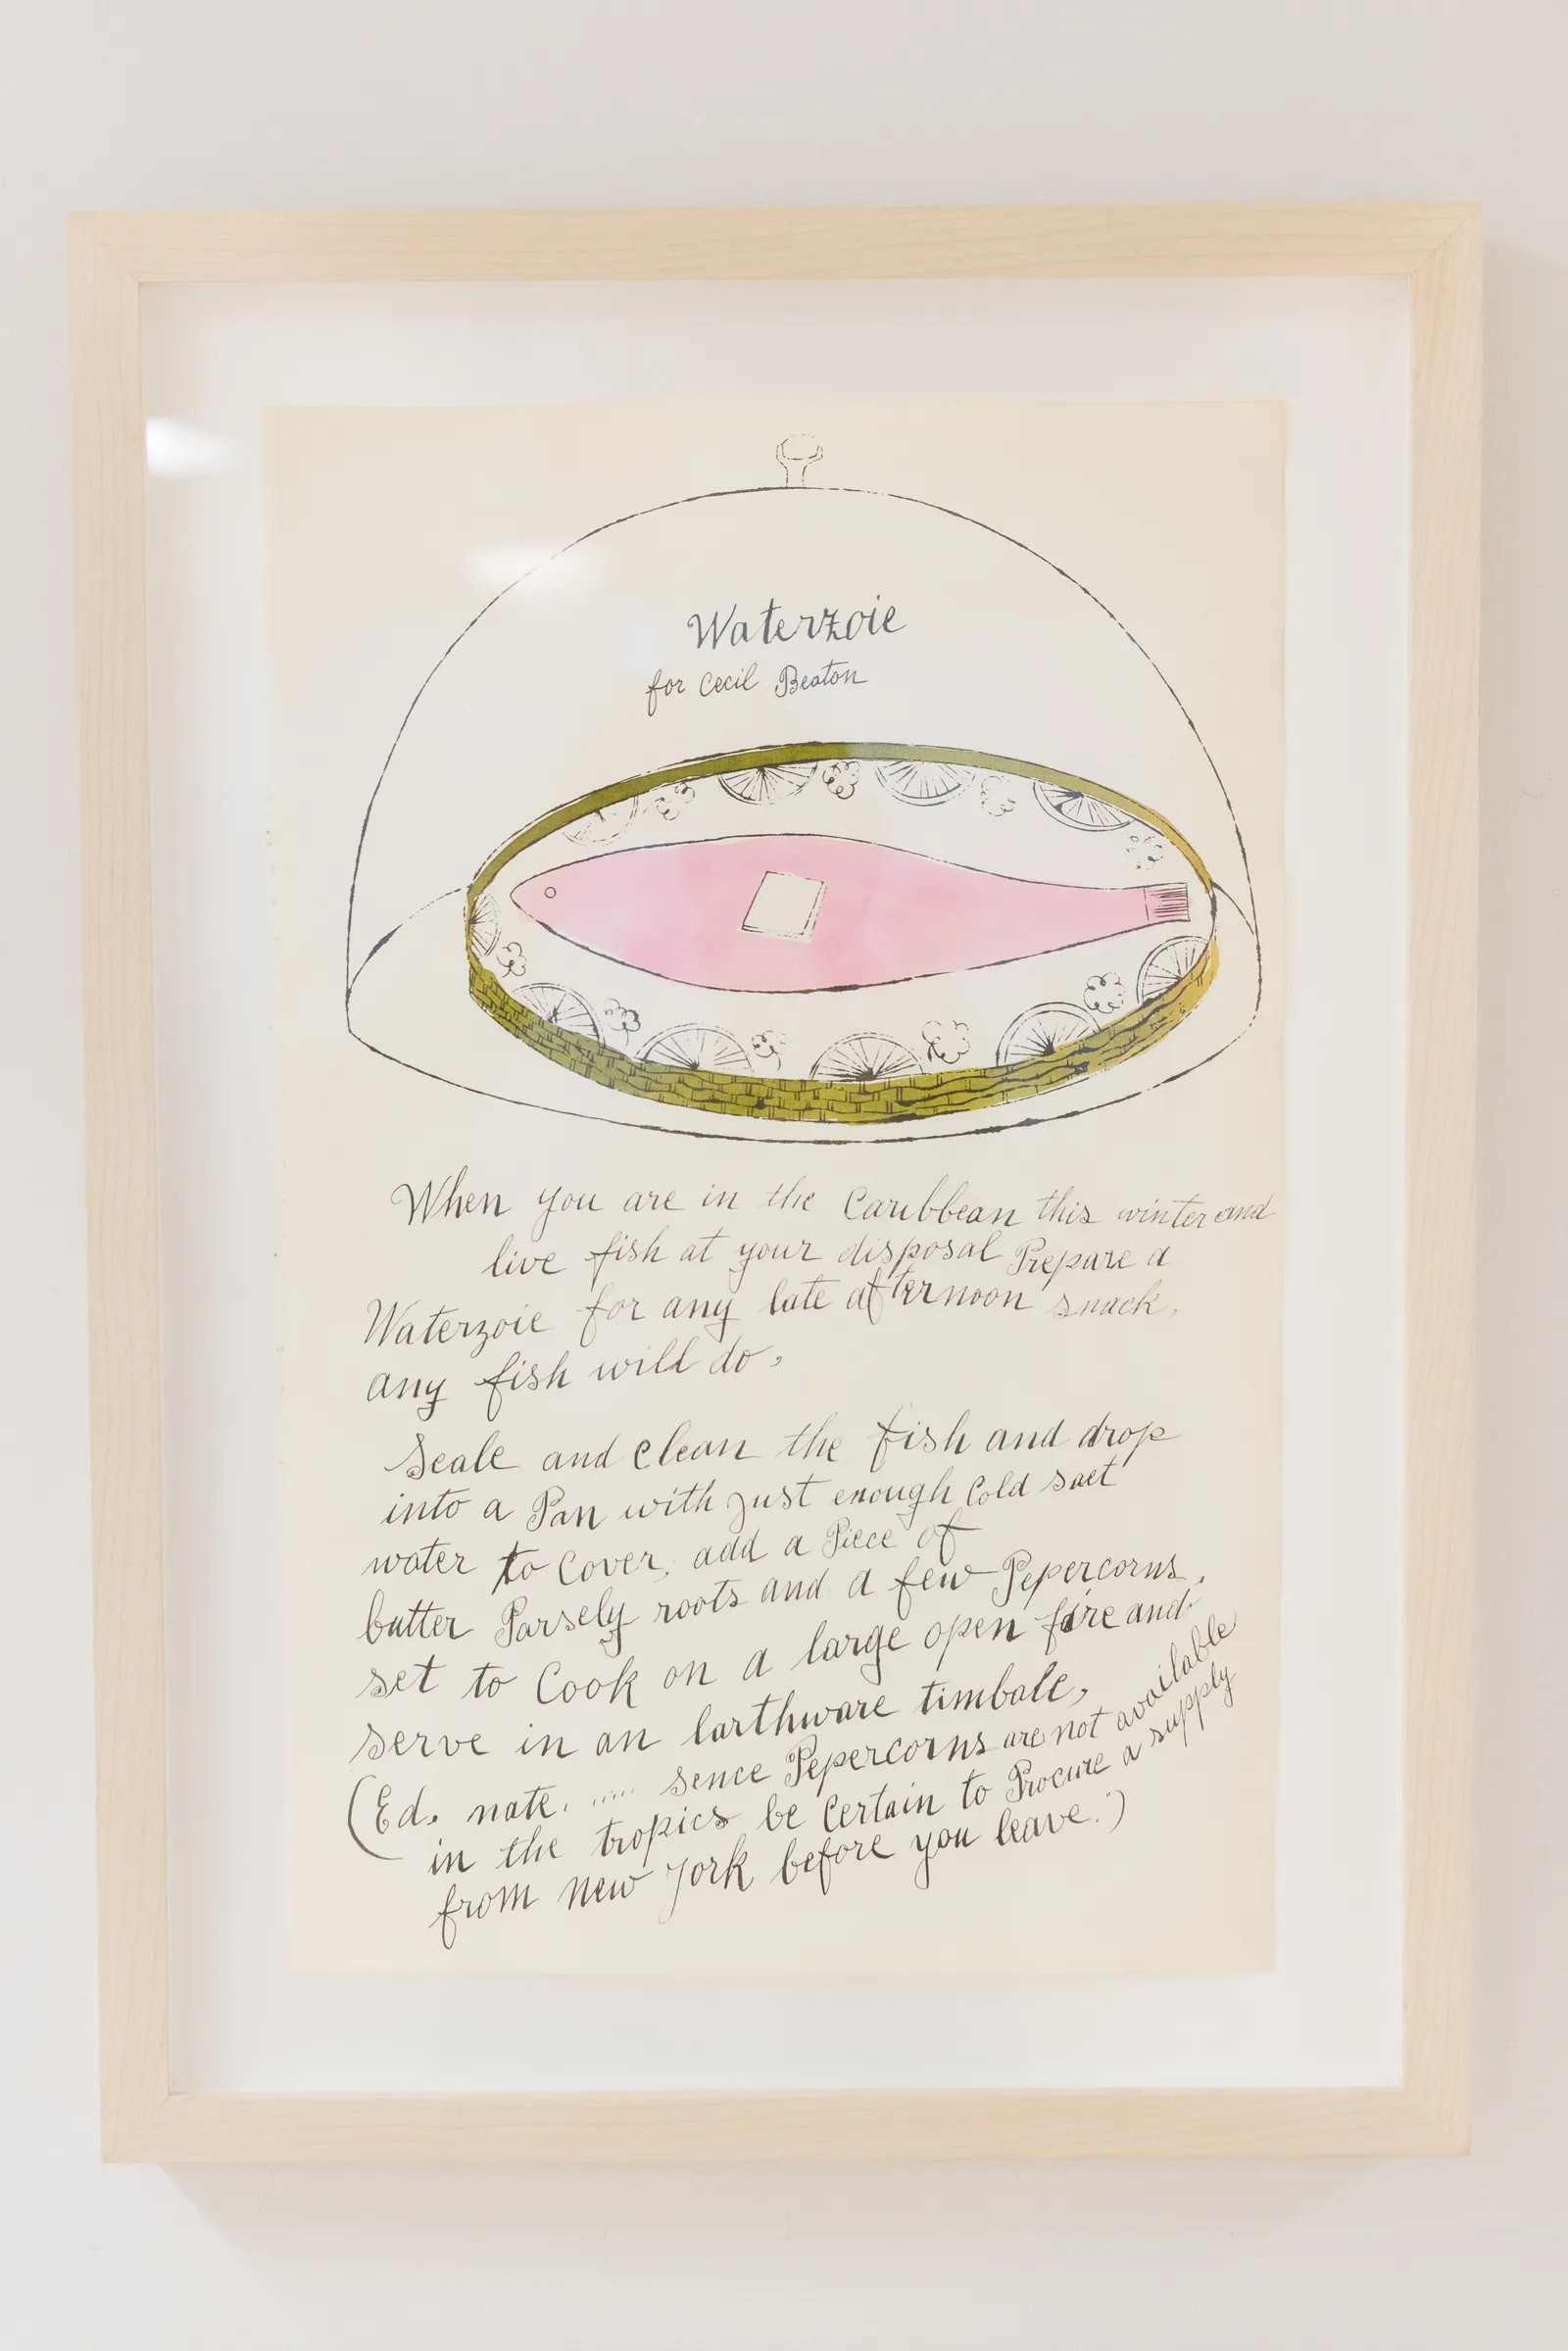 Waterzoie
for Cecil Beaton
When you are in the Caribbean this winter and
live fish at your disposal Prepare a
Waterzoie for any late afternoon snack,
any fish will do,
Scale and clean the fish and drop
into a Pan with just enough Cold salt
water to Cover, add a Piece of
butter Parsely roots and a few Pepercorns,
set to Cook on a large open fire and
serve in an earthware timbale,
(Ed. note. ..... sence Pepercorns are not available
in the tropics be Certain to Procure a supply
from New York before you leave.)